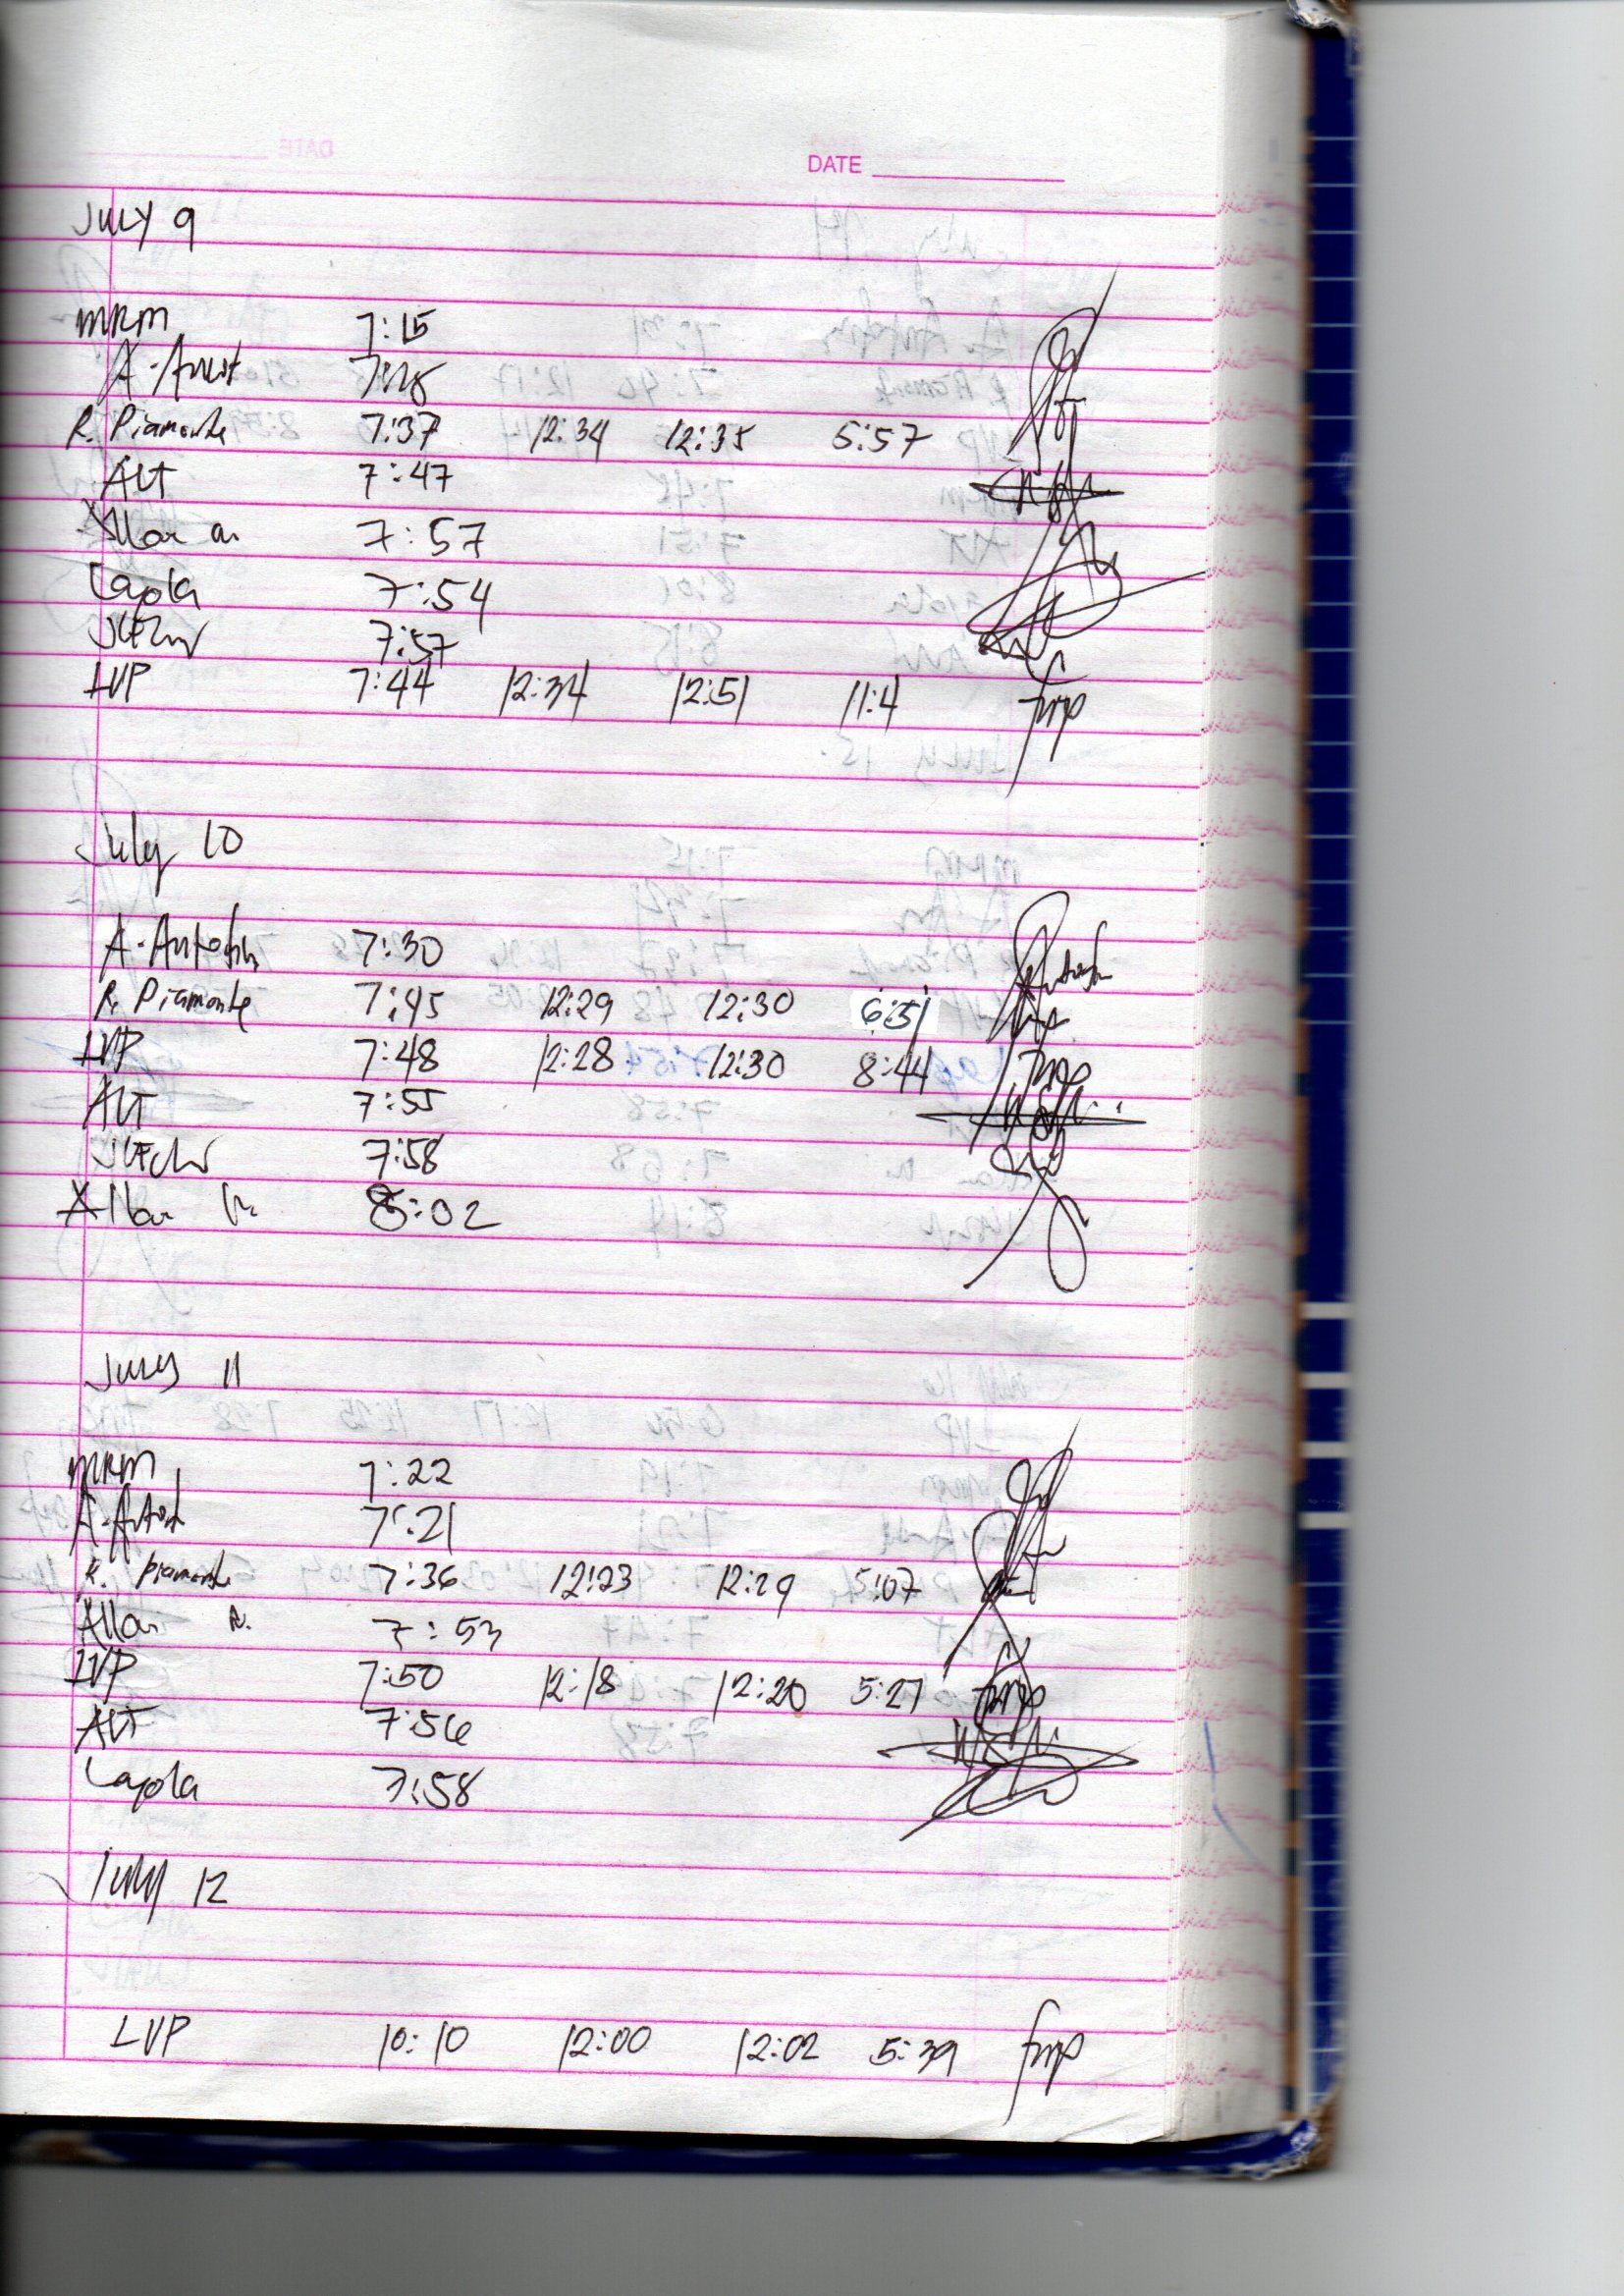 DATE
JULY 9
MRM 7:15
A. 
R. Piamonte 7:37 12:34 12:35 6:57
ALT 7:47
Allan 7:57
Layola 7:54
7:57
LVP 7:44 12:34 12:51 11:4
July 10
A. 7:30
R. Piamonte 7:45 12:29 12:30 6:51
LVP 7:48 12:28 12:30 8:44
ALT 7:55
7:58
Allan 8:02
July 11
MRM 7:22
A. 7:21
R. Piamonte 7:36 12:23 12:29 5:07
Allan 7:53
LVP 7:50 12:18 12:20 5:27
ALT 7:56
Layola 7:58
July 12
LVP 10:10 12:00 12:02 5:39